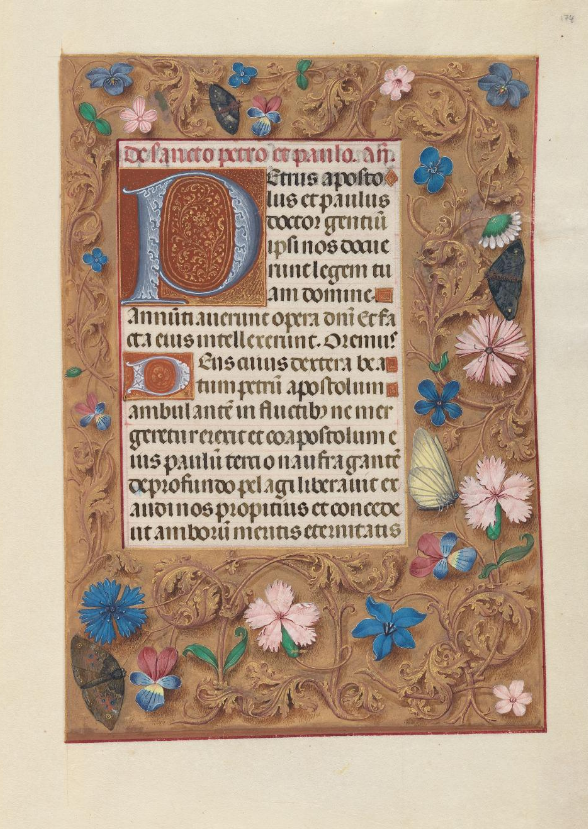 De sancto petro et paulo. Añ.
PEtrus aposto
lus et paulus
doctor gentiū
ipsi nos docue
runt legem tu
am domine.
Annūti auerunt opera dn̄i Et fa
cta eius intellexerunt. Oremus
DEus cuius dextera bea
tum petrū apostolum
ambulantē in fluctibꝫ ne mer
geretur erexit et coapostolum e
ius paulū tercio naufragantē
de profundo pelagi liberauit ex
audi nos propitius et concede
ut amborū meritis eternitatis